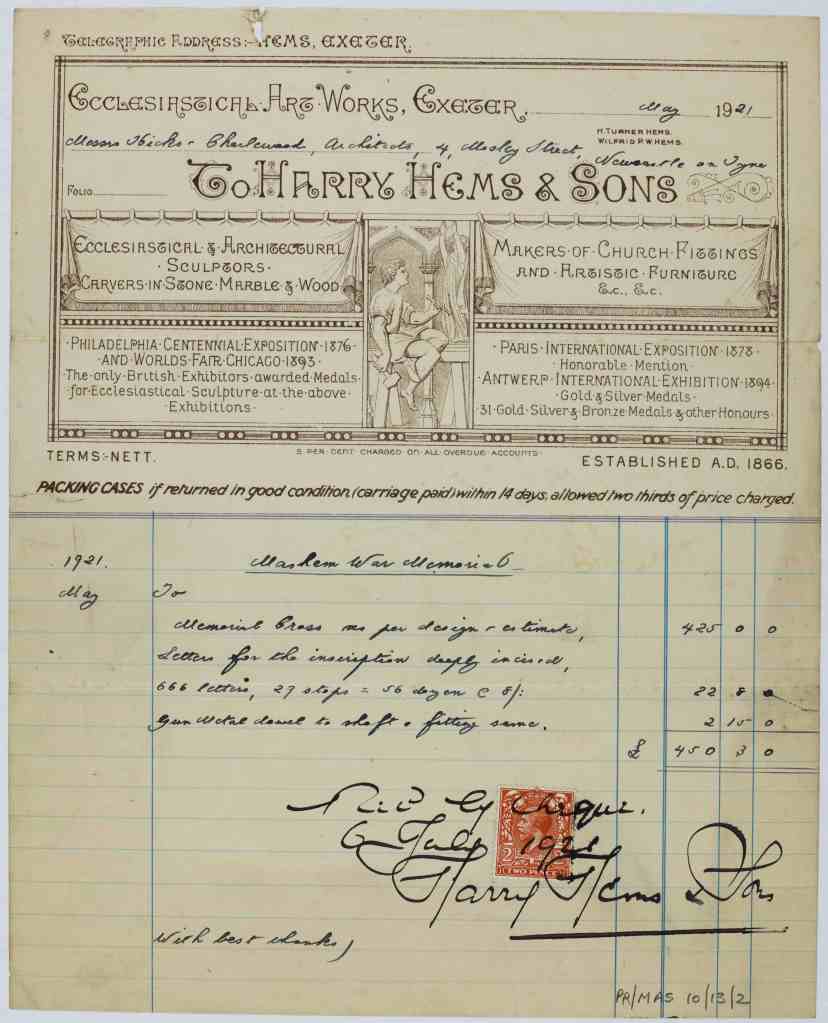 TELEGRAPHIC ADDRESS:- HEMS, EXETER.
ECCLESIASTICAL·ART·WORKS, EXETER, May 1921
H. TURNER HEMS.
WILFRID P. W. HEMS.
Messrs Hicks & Charlewood, Architects, 4, Mosley Street, Newcastle on Tyne
To HARRY HEMS & SONS
FOLIO
ECCLESIASTICAL & ARCHITECTURAL
·SCULPTORS·
CARVERS·IN·STONE·MARBLE·&·WOOD
MAKERS·OF·CHURCH·FITTINGS
AND·ARTISTIC·FURNITURE
&c., &c.
·PHILADELPHIA·CENTENNIAL·EXPOSITION·1876·
·AND·WORLDS·FAIR·CHICAGO·1893·
·The·only·British·Exhibitors·awarded·Medals·
·for·Ecclesiastical·Sculpture·at·the·above·
·Exhibitions·
·PARIS·INTERNATIONAL·EXPOSITION·1878·
·Honorable·Mention·
·ANTWERP·INTERNATIONAL·EXHIBITION·1894·
·Gold·&·Silver·Medals·
·31·Gold·Silver·&·Bronze·Medals·&·other·Honours·
TERMS:-NETT.
5 PER CENT CHARGED ON ALL OVERDUE ACCOUNTS
ESTABLISHED A.D. 1866.
PACKING CASES if returned in good condition, (carriage paid) within 14 days, allowed two thirds of price charged.
1921. Masham War Memorial
May To
Memorial Cross as per design & estimate, 425 0 0
Letters for the inscription deeply incised,
666 letters, 27 stops = 56 dozen @ 8/: 22 8 0
Gun Metal dowel to shaft & fitting same. 2 15 0
£ 450 3 0
Rec'd by cheque.
6 July 1921
Harry Hems & Sons
2
TWO PENCE
With best thanks,
PR/MAS 10/13/2